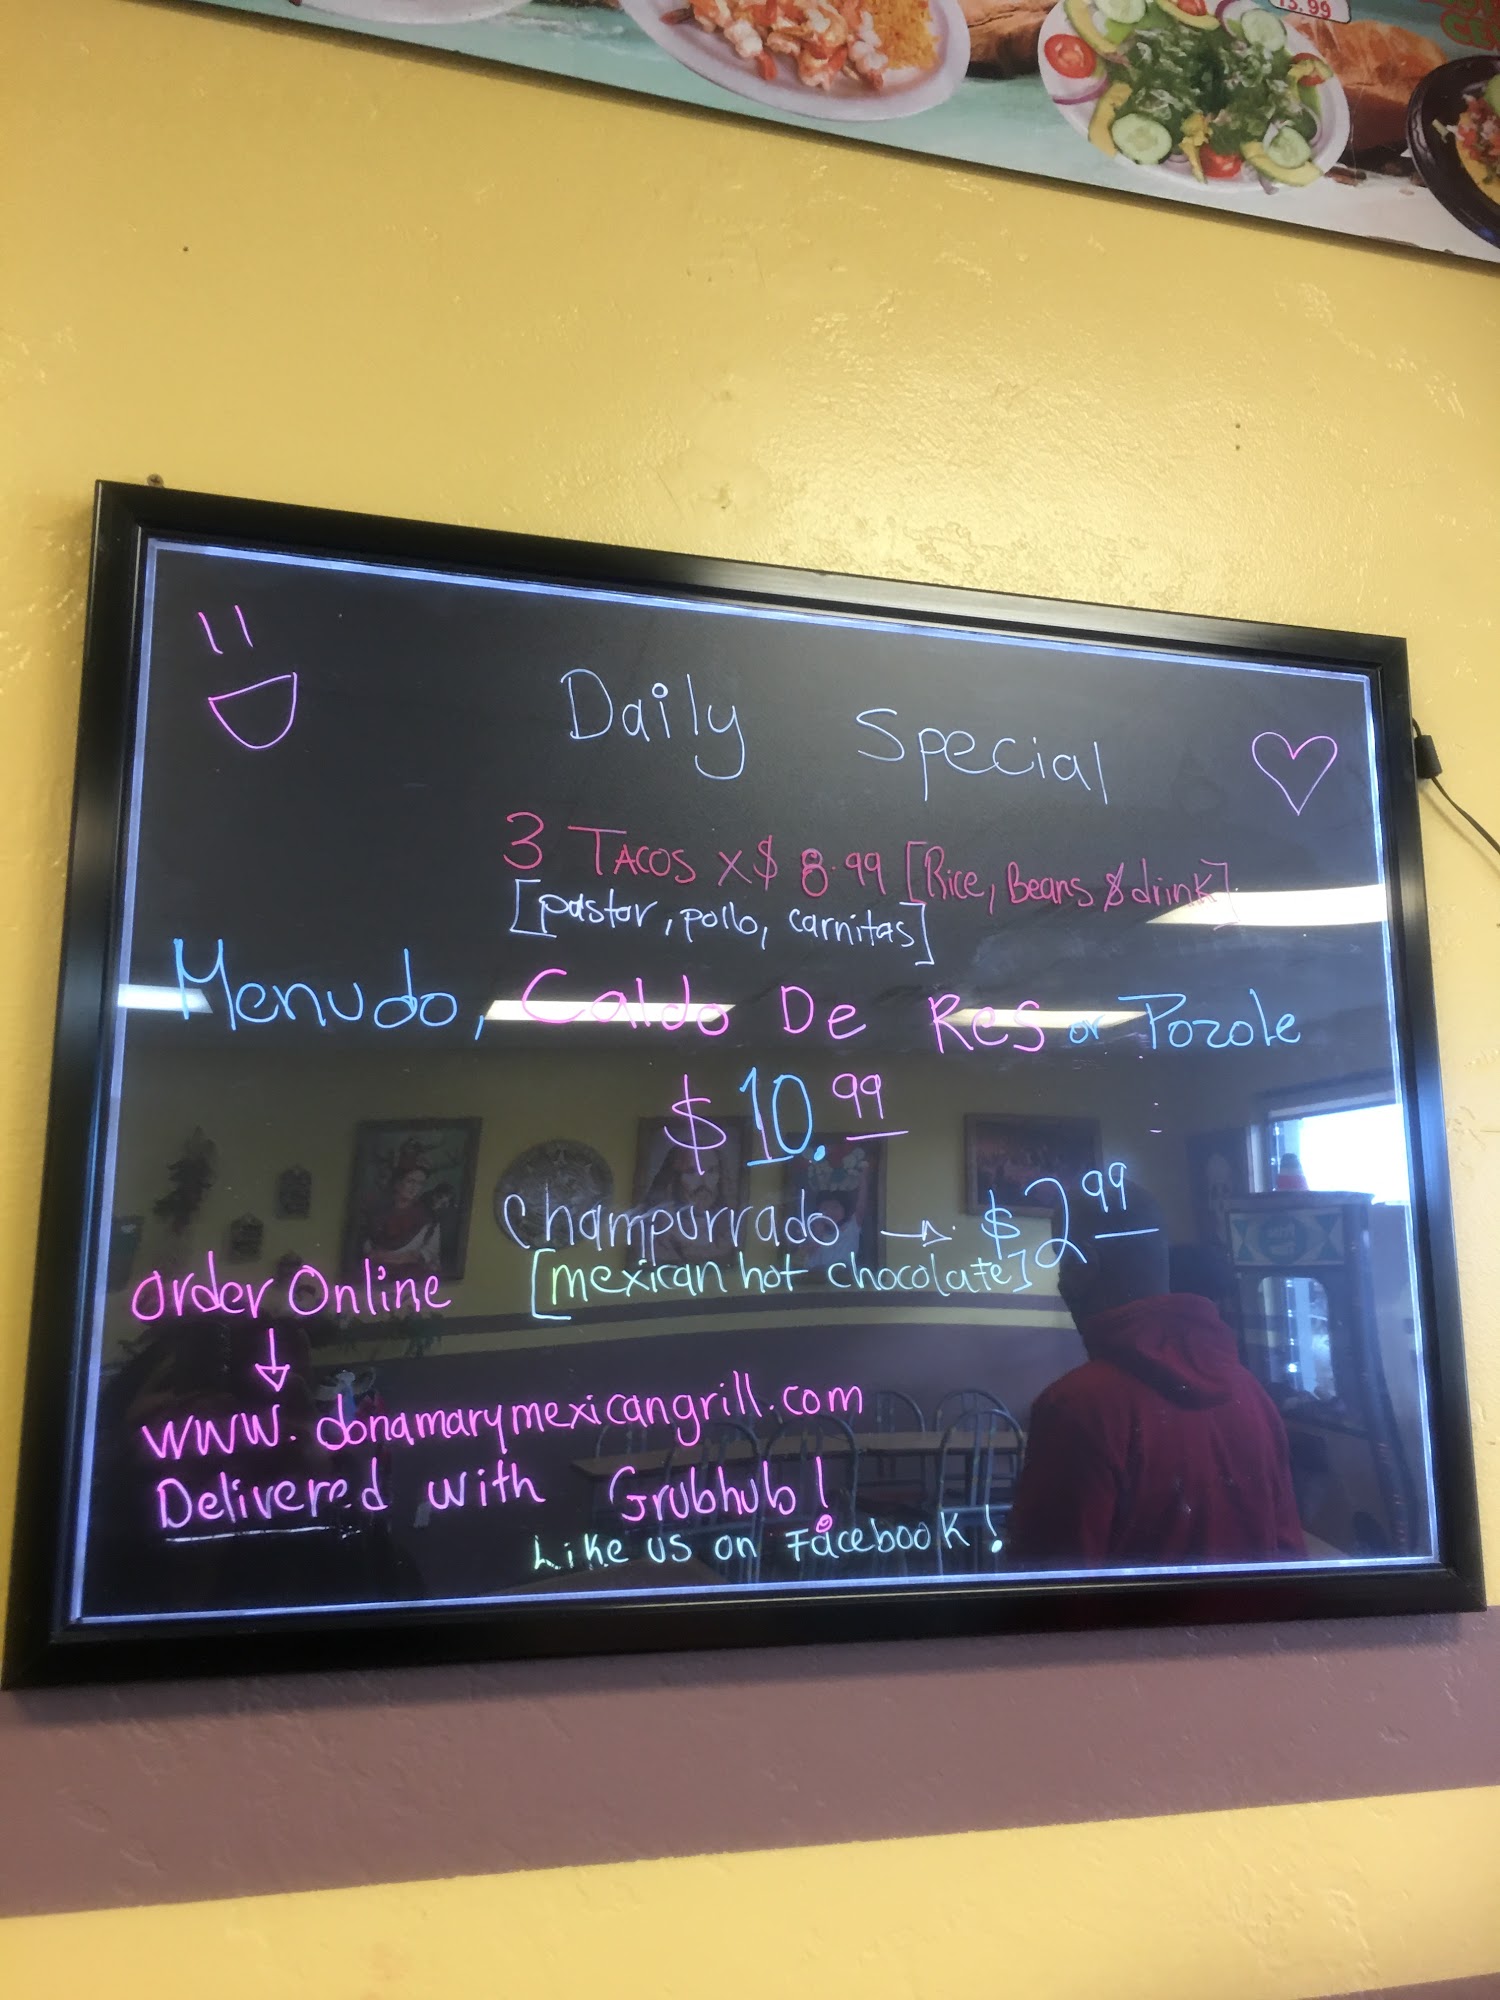 15.99
Daily Special
3 TACOS x $8.99 [Rice, Beans & drink]
[pastor, pollo, carnitas]
Menudo, Caldo De Res or Pozole
$10.99
Champurrado → $2.99
[mexican hot chocolate]
Order Online
↓
www.donamarymexicangrill.com
Delivered with Grubhub!
Like us on Facebook!